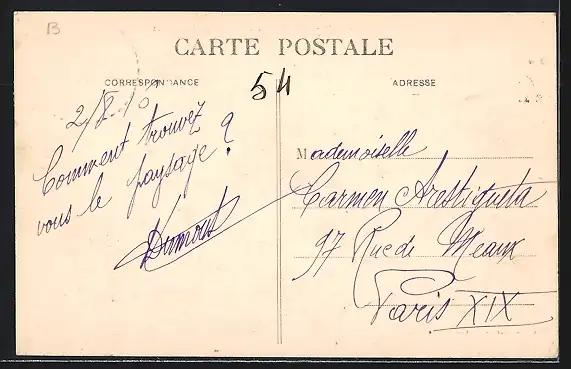 B
CARTE POSTALE
CORRESPONDANCE
54
ADRESSE
Comment trouvez
vous le paysage ?
Dumont
Mademoiselle
Carmen Arestigueta
97 Rue de Meaux
Paris XIX